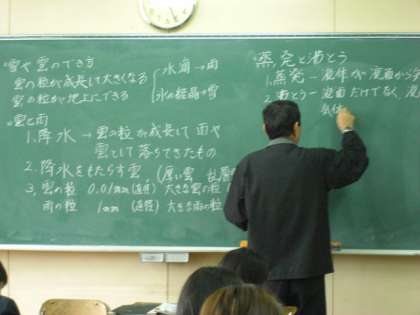 雪や雲のでき方
雲の粒が成長して大きくなる
雲の粒が地上にできる
水滴→雨
氷の結晶→雪
雲と雨
1. 降水 → 雲の粒が成長して 雨や
雲として落ちてきたもの
2. 降水をもたらす雲 (厚い雲
3. 雲の粒 0.01mm (直径) 大きな雲の粒
雨の粒 1mm (直径) 大きな雨の粒
蒸発とふっとう
1. 蒸発 — 液体が液面から
2. ふっとう — 液面だけでなく、液
気体